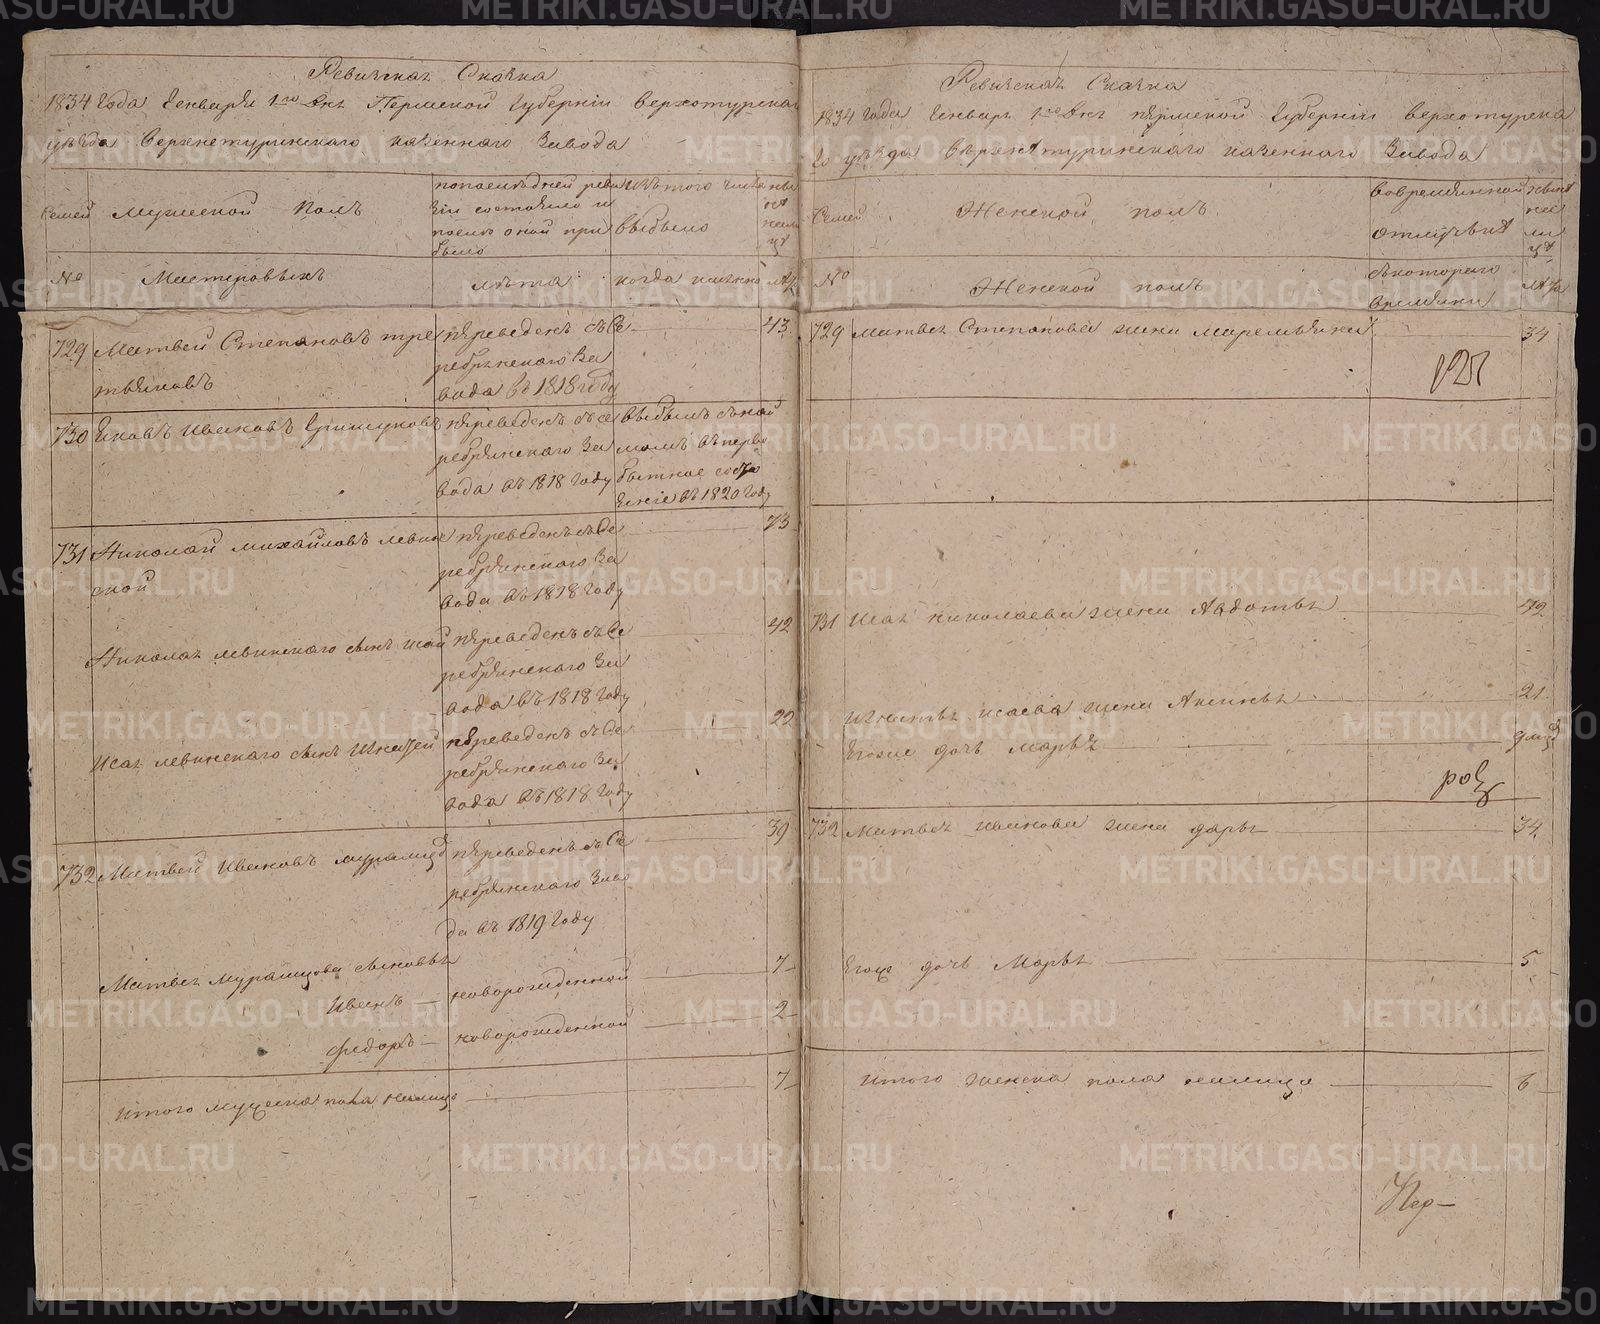 Ревизская Сказка
1834 Года Генваря 1го дня Пермской Губернiи верхотурскаго
уѣзда Верхнетуринскаго казеннаго Завода
Семей
Мужеской Полъ
по последней реви
зiи состояло и
после оной при
было
изъ того числа
выбыло
ны
не
на ли
цо
№
Мастеровыхъ
лѣта
когда именно
лѣта
729 Матвей Степановъ тре
тьяковъ
переведенъ съ Се
ребрянскаго За
вода въ 1818 году
43
730 Яковъ Ивановъ Гришуновъ
переведенъ съ Се
ребрянскаго За
вода въ 1818 Году
выбылъ
въ перво
бытное состо
янiе въ 1820 Году
731 Николай михайловъ левин
ской
переведенъ съ Се
ребрянскаго За
вода въ 1818 Году
73
Николая левинскаго сынъ исай
переведенъ съ Се
ребрянскаго За
вода въ 1818 Году
42
Исая левинскаго сынъ Игнатей
переведенъ съ Се
ребрянскаго За
вода въ 1818 Году
22
732 Матвей Ивановъ мурашовъ
переведенъ съ Се
ребрянскаго Заво
да въ 1819 Году
39
Матвея Мурашова сыновья
Иванъ — новорожденной
7
Федоръ — новорожденной
2
итого мужеска пола налицо
7
Ревизская Сказка
1834 Года Генваря 1го дня пермской Губернiи верхотурска
го уѣзда верхнетуринскаго казеннаго Завода
Семей
Женской полъ
во временной
отлучке
ныне
на
ли
цо
№
Женской полъ
съ котораго
времяни
лѣта
729 матвея Степанова жена Маремьяна
34
731 Исая николаева жена Авдотья
42
Игнатья исаева жена Аксинья
21
Егоже дочь Марья
9 ме
732 Матвея иванова жена дарья
34
Егоже дочь Марья
5
итого женска пола налицо
6